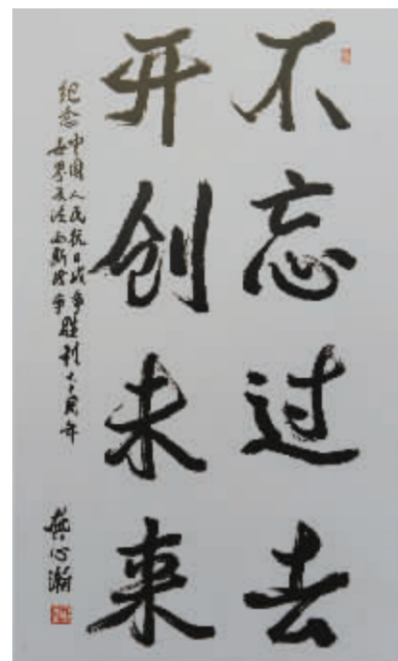 不忘过去
开创未来
纪念中国人民抗日战争
世界反法西斯战争胜利七十周年
龚心瀚